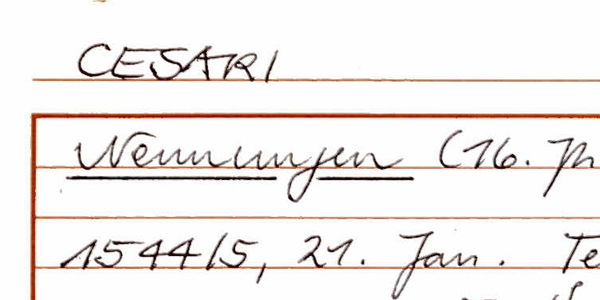 CESARI
Nennungen (16. Jh
1544/5, 21. Jan. Te